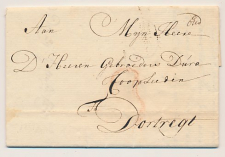 Aan Myn Heere
D Heeren Gebroeders Dura
Coopluiden
A
Dortregt